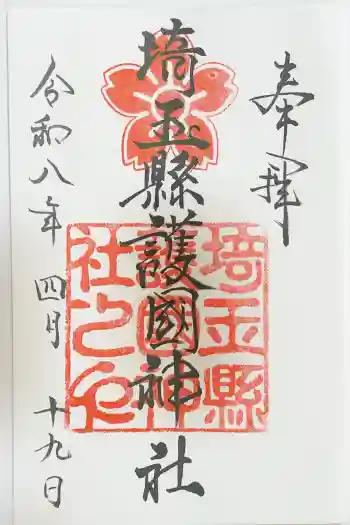 奉拝
埼玉縣護國神社
埼玉縣
護國神
社之印
令和八年 四月 十九日